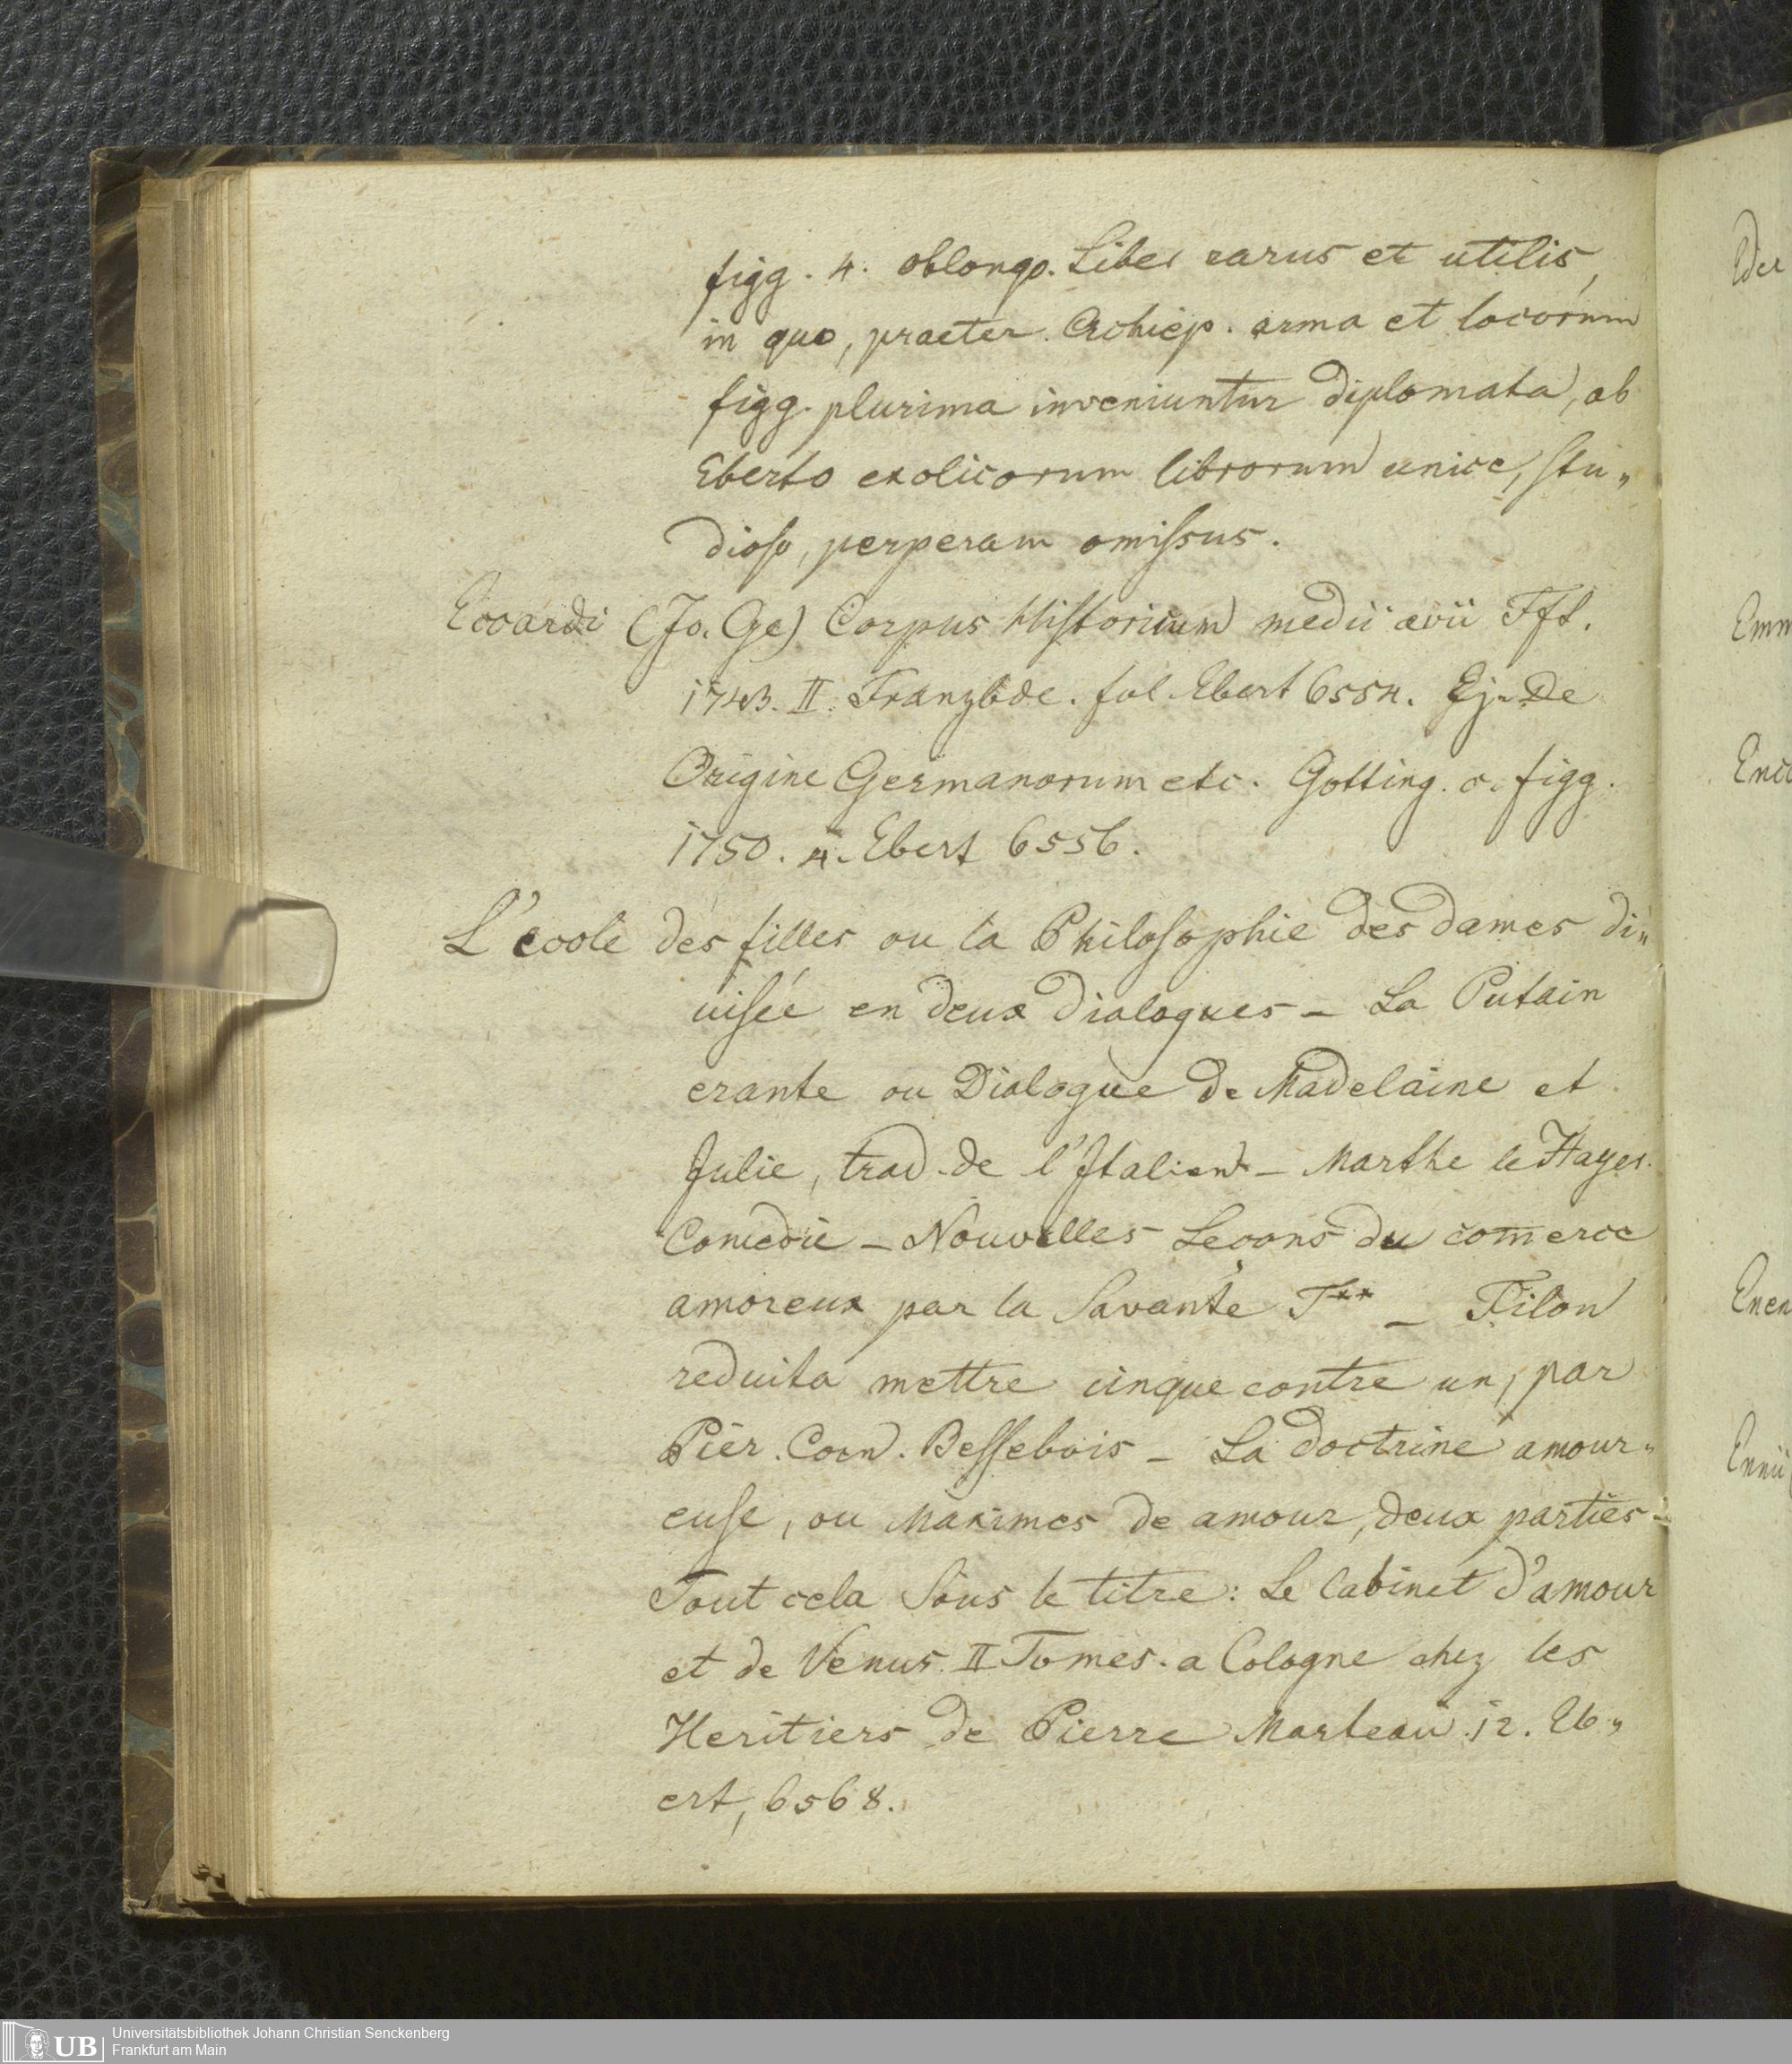 figg. 4. oblongo. Liber rarus et utilis,
in quo, praeter Archiep. arma et locorum
figg. plurima inveniuntur diplomata, ab
Eberto exoticorum librorum unice, stu„
dioso, perperam omissus.
Eccardi (Jo. Ge) Corpus Historicum medii aevii Fft.
1743. II. Franzbde. fol. Ebert 6554. Ej. De
Origine Germanorum etc. Gotting. c. figg.
1750. 4. Ebert 6556.
L'ecole des filles ou la Philosophie des dames di„
visée en deux dialogues – La Putain
erante ou Dialogue de Madelaine et
Julie, trad. de l'Italien – Marthe le Hayer.
Comedie – Nouvelles Lecons du comerce
amoreux par la Savante T** – Filon
reduita mettre cinque contre un, par
Pier. Corn. Bessebois – La doctrine amour„
euse, ou Maximes de amour, deux parties –
Tout cela sous le titre: Le Cabinet d'amour
et de Venus. II Tomes. a Cologne chez les
Heritiers de Pierre Marteau. 12. Eb„
ert, 6568.
Emm
Enc
Enen
Ennii
UB
Universitätsbibliothek Johann Christian Senckenberg
Frankfurt am Main